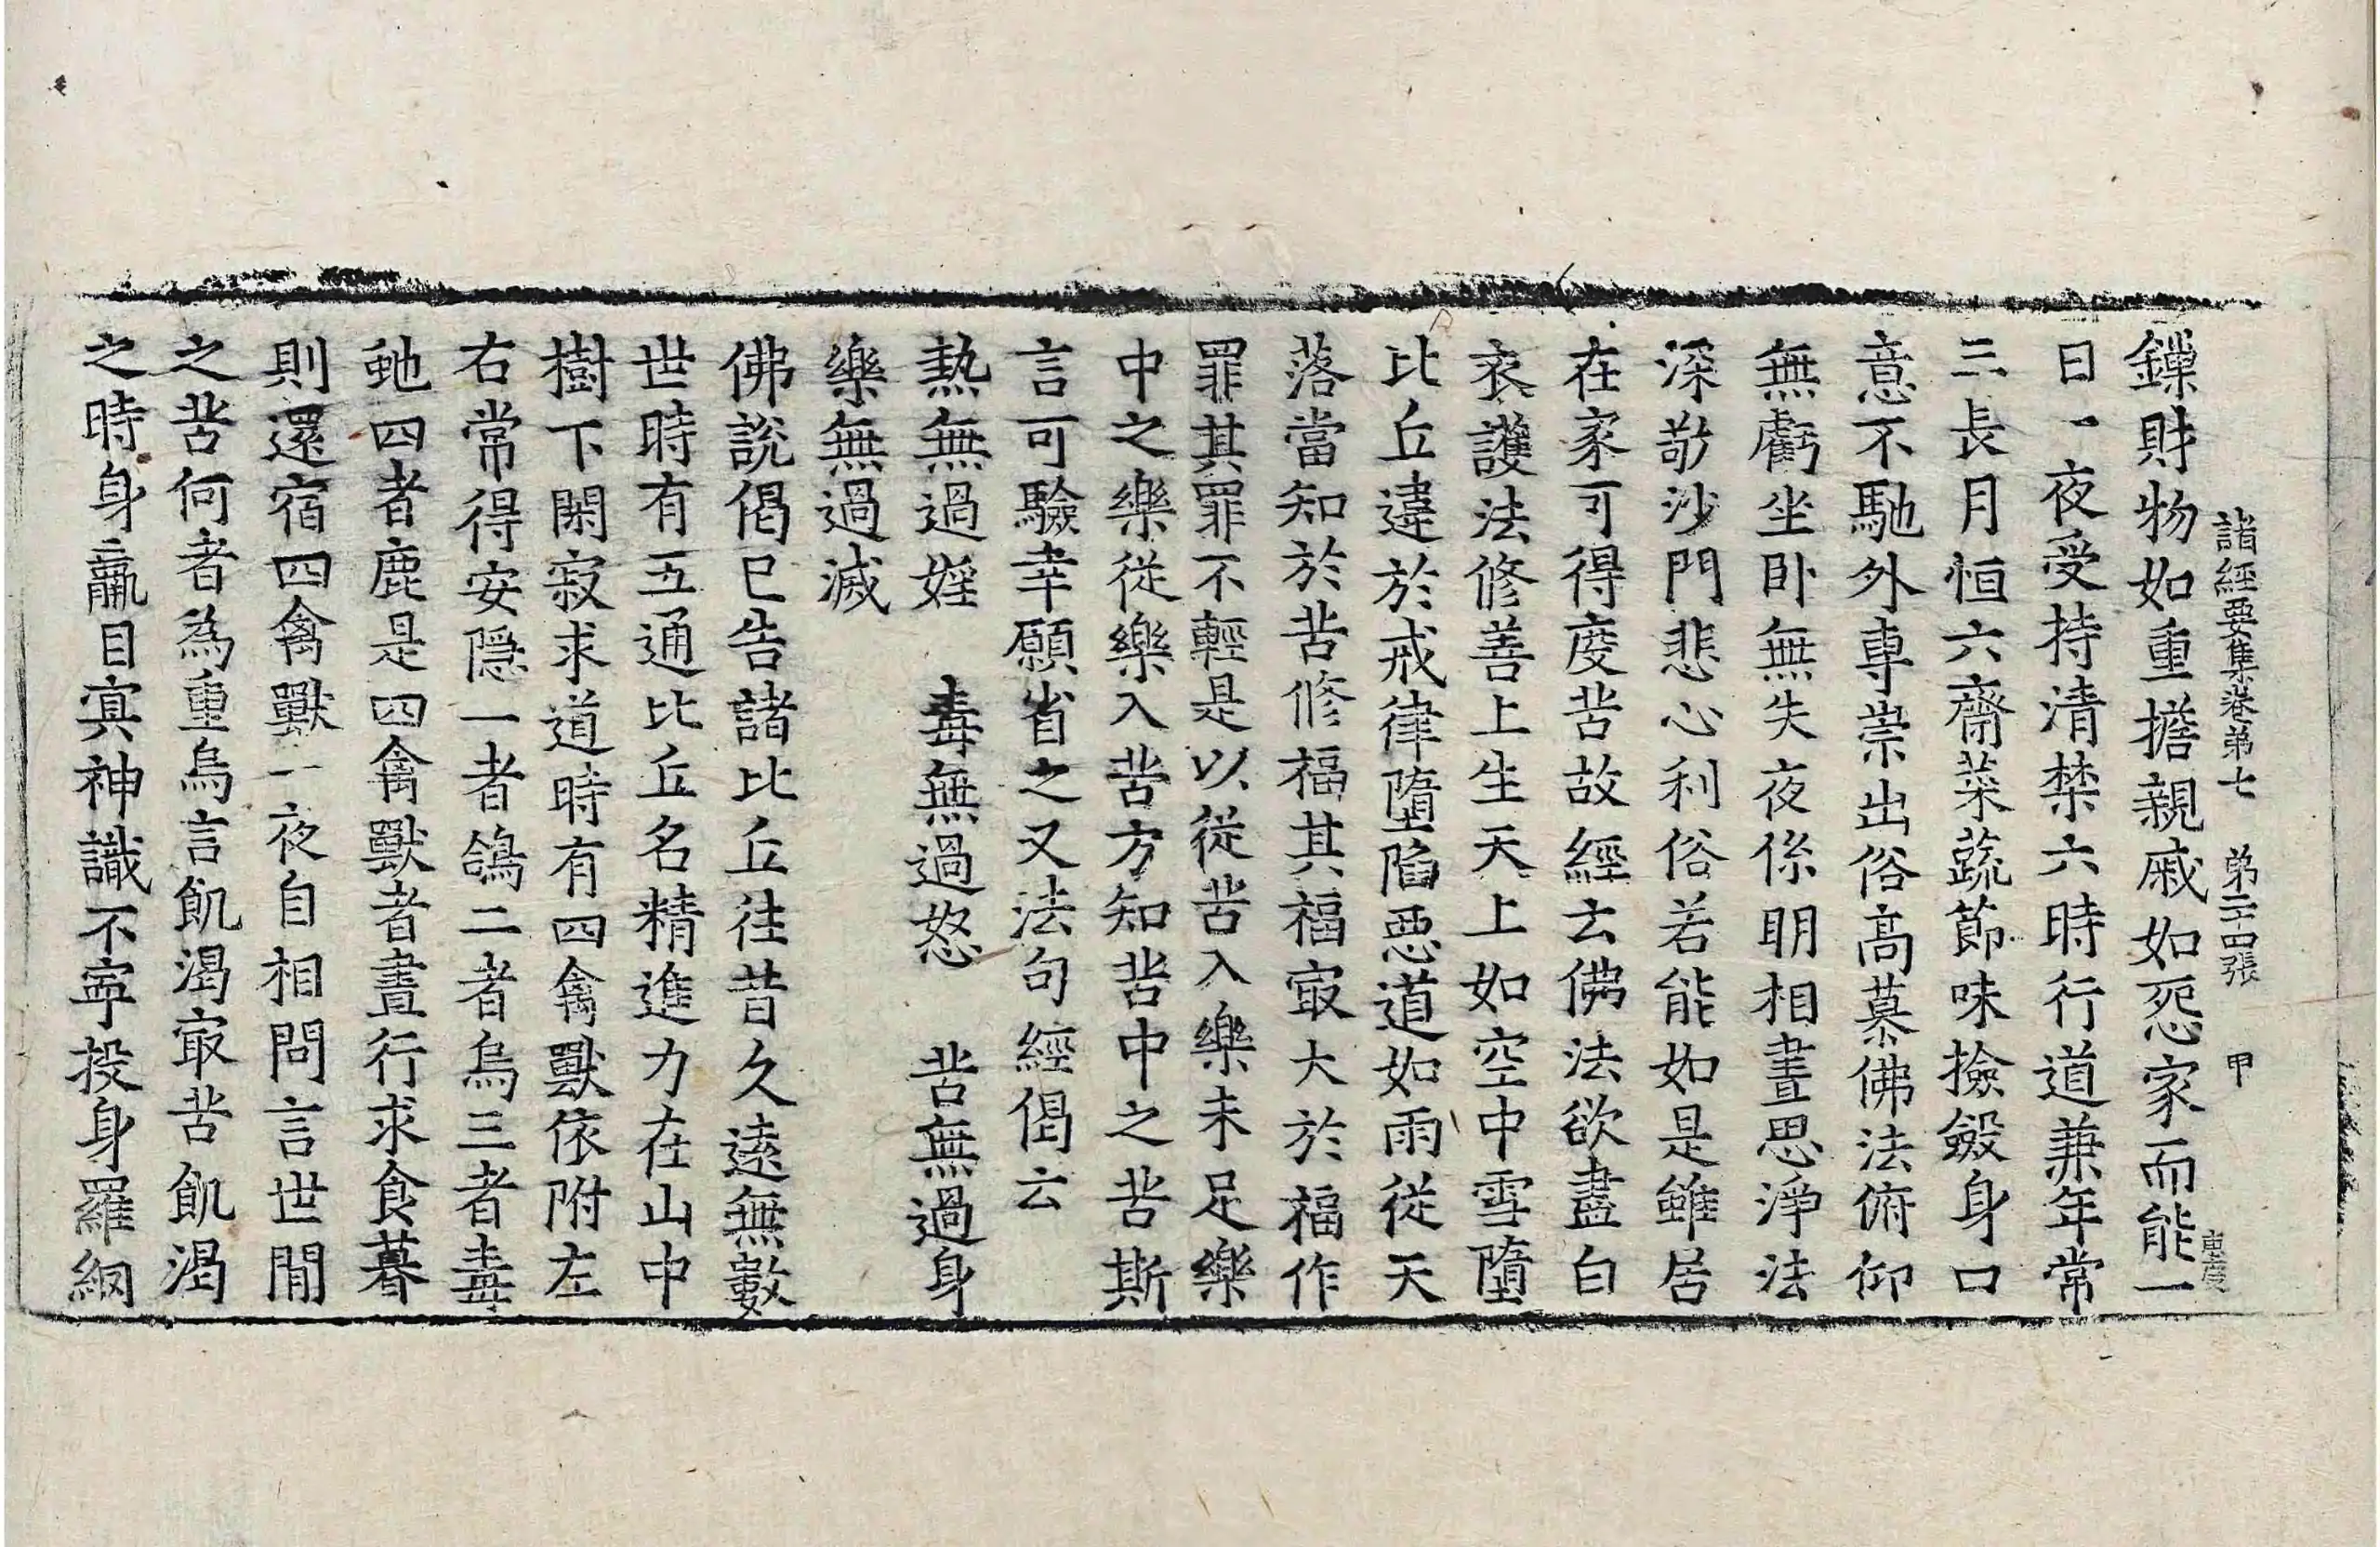 諸經要集卷第七　第二十四張　甲
鏁財物如重擔親戚如怨家而能一
日一夜受持清禁六時行道兼年常
三長月恒六齋菜蔬節味撿斂身口
意不馳外專崇出俗高慕佛法俯仰
無虧坐卧無失夜係明相晝思淨法
深敬沙門悲心利俗若能如是雖居
在家可得度苦故經云佛法欲盡白
衣護法修善上生天上如空中雪墮
比丘違於戒律墮陷惡道如雨從天
落當知於苦修福其福㝡大於福作
罪其罪不輕是以從苦入樂未足樂
中之樂從樂入苦方知苦中之苦斯
言可驗幸願省之又法句經偈云
熱無過婬　毒無過怒　苦無過身
樂無過滅
佛說偈已告諸比丘往昔久遠無數
世時有五通比丘名精進力在山中
樹下閑寂求道時有四禽獸依附左
右常得安隱一者鴿二者烏三者毒
虵四者鹿是四禽獸者晝行求食暮
則還宿四禽獸一夜自相問言世間
之苦何者為重烏言飢渴㝡苦飢渴
之時身羸目冥神識不寧投身羅網